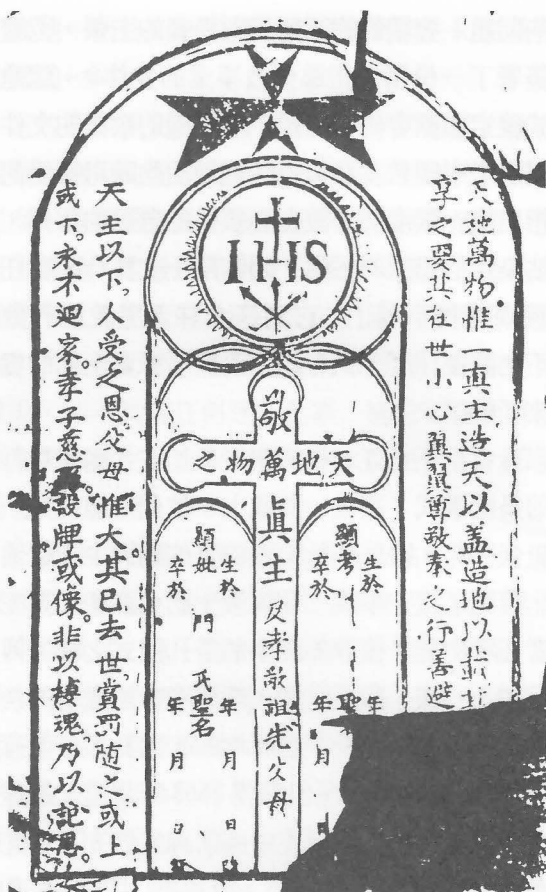 天地萬物惟 真主造天以盖造地以載
之要 世小心翼翼尊敬奉之行善避
IHS
敬
天地萬物之
眞主及孝敬祖先父母
生於 年
顯考 聖
卒於 年 月 日
生於 年 月 日
顯妣 門 氏聖名
卒於 年 月 日
天主以下。受之恩父母。惟大其已去世賞罰随之或上
或下。永不迴家孝子慈孫。設牌或像。非以棲魂乃以記恩。